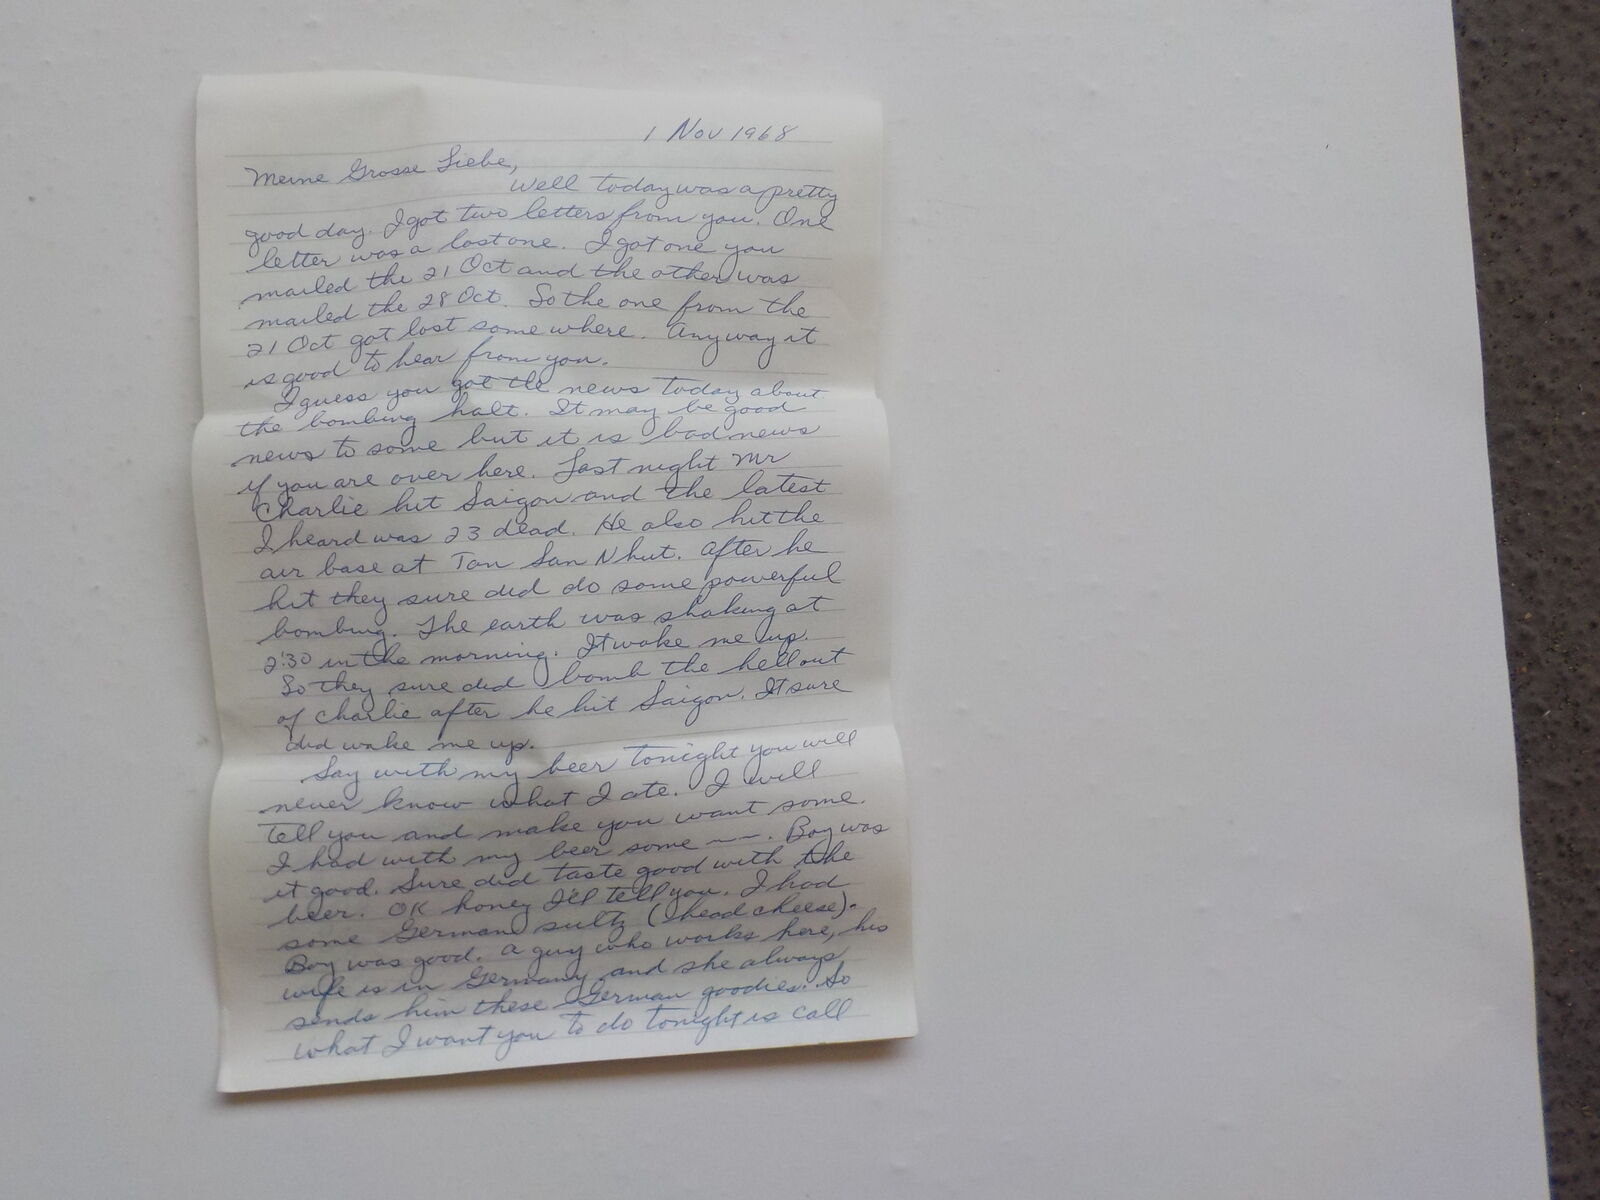 1 Nov 1968
Meine Grosse Liebe,
Well today was a pretty
good day. I got two letters from you. One
letter was a lost one. I got one you
mailed the 21 Oct and the other was
mailed the 28 Oct. So the one from the
21 Oct got lost some where. Anyway it
is good to hear from you.
I guess you got the news today about
the bombing halt. It may be good
news to some but it is bad news
if you are over here. Last night Mr
Charlie hit Saigon and the latest
I heard was 23 dead. He also hit the
air base at Tan San Nhut. After he
hit they sure did do some powerful
bombing. The earth was shaking at
2:30 in the morning. It woke me up.
So they sure did bomb the hell out
of Charlie after he hit Saigon. It sure
did wake me up.
Say with my beer tonight you will
never know what I ate. I will
tell you and make you want some.
I had with my beer some ——. Boy was
it good. Sure did taste good with the
beer. OK honey I'll tell you. I had
some German sultz (head cheese).
Boy was good. A guy who works here, his
wife is in Germany and she always
sends him these German goodies. So
what I want you to do tonight is call